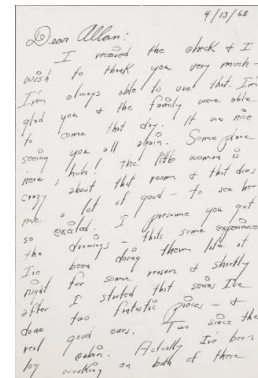 4/13/68
Dear Allan:
I received the check & I
wish to thank you very much -
I'm always able to use that. I'm
glad you & the family were able
to come that day. It was nice
seeing you all again. Some place
here, huh! The little woman is
crazy about that room & that does
me a lot of good - to see her
so excited. I presume you got
the drawings - thats some experience
I've been doing them late at
night for some reason & shortly
after I started that series I've
done two fantastic pieces - &
real good ones. Two since the
Actually I've been
working on both of these